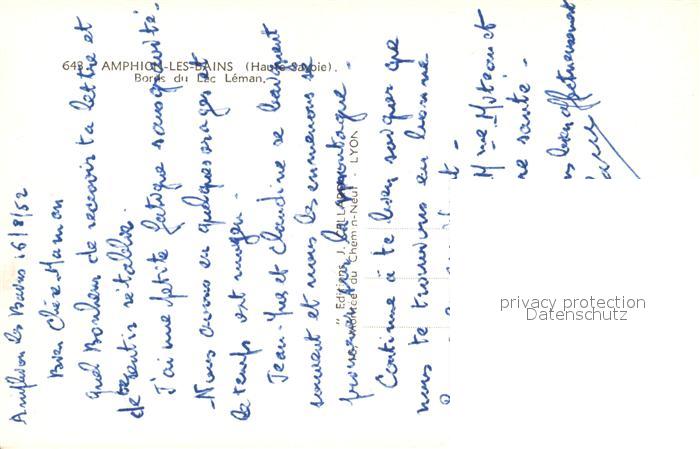 643. AMPHION-LES-BAINS (Haute-Savoie).
Bords du Lac Léman.
Amphion les Bains 16/8/52
Bien Chère Maman
Quel Bonheur de recevoir ta lettre et
de te sentir rétablie.
J'ai une petite fatigue sans gravité.
Nous avons eu quelques orages et
le temps est moyen.
Jean-Yves et Claudine se baignent
souvent et nous les emmenons se
promener par la montagne.
Continue à te bien soigner que
nous te trouvions en bonne
Mme
et
santé.
bien affectueusement
" Editions J. CELLARD
Chemin-Neuf - LYON
privacy protection
Datenschutz